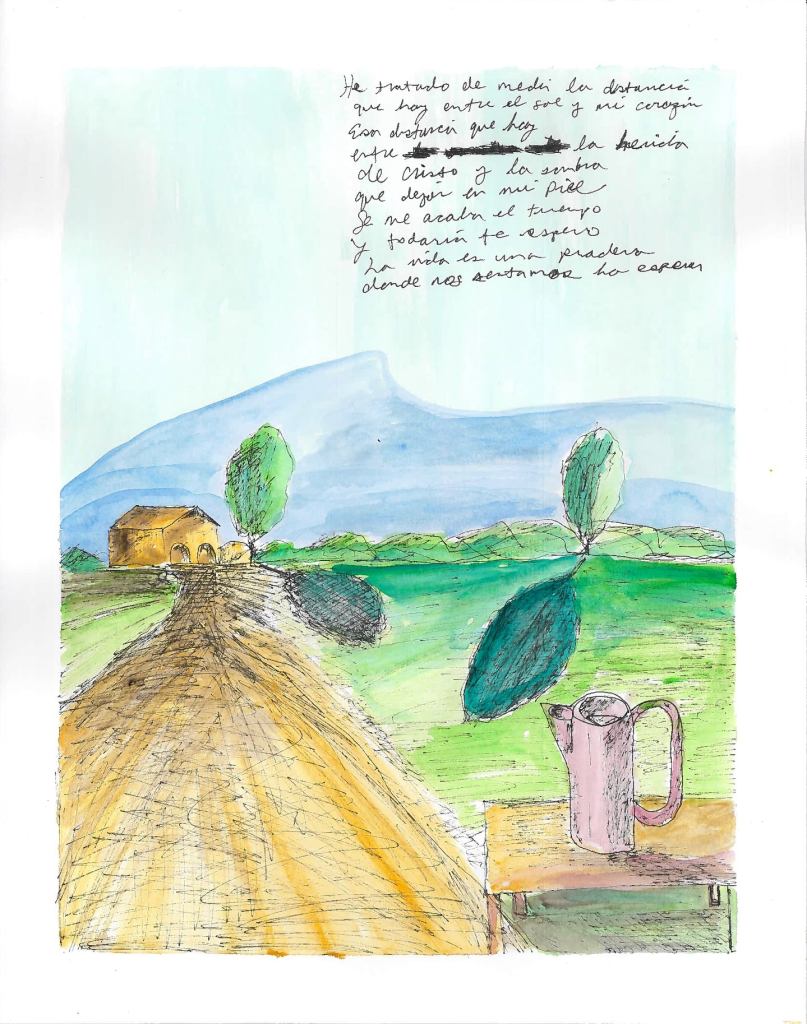 He tratado de medir la distancia
que hay entre el sol y mi corazón
Esa distancia que hay
entre la herida
de Cristo y la sombra
que dejar en mi piel
Se me acaba el tiempo
Y todavía te espero
La vida es una pradera
donde nos sentamos ha esperar